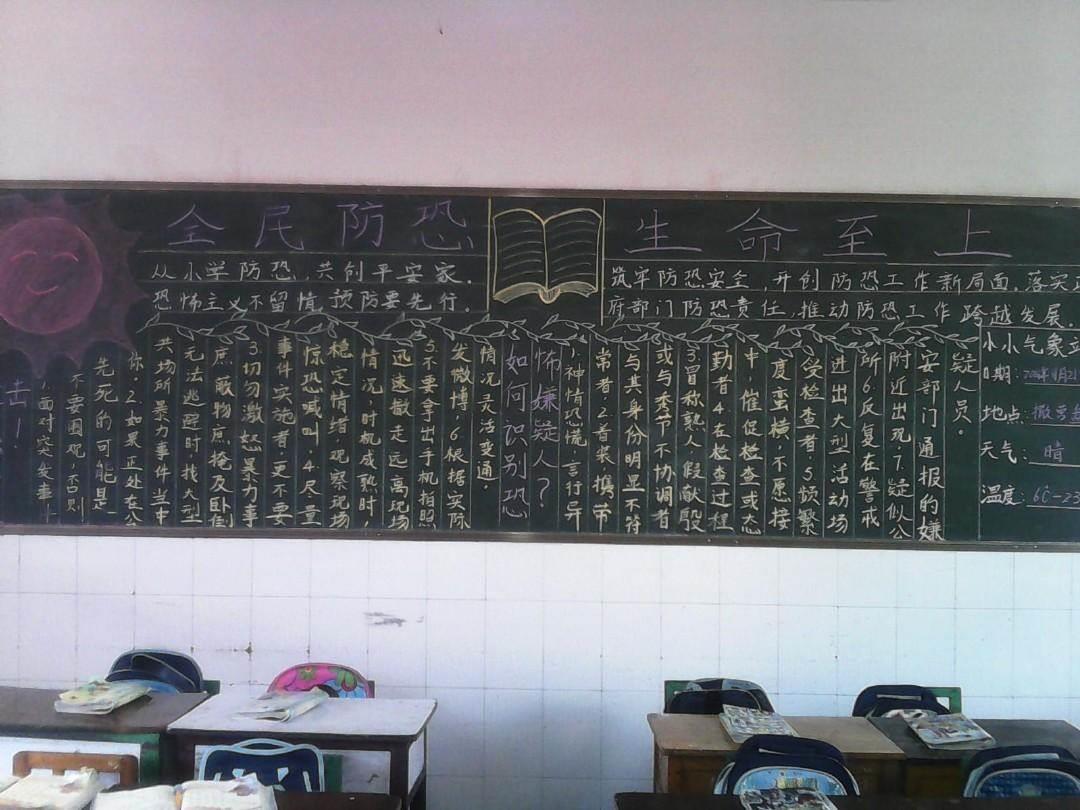 全民防恐
从小学防恐,共创平安家。
恐怖主义不留情,预防要先行。
生命至上
筑牢防恐安全,开创防恐工作新局面。落实
府部门防恐责任,推动防恐工作跨越发展。
击!
1.面对突发事
不要围观,否则
先死的可能是
你。2.如果正处在公
共场所暴力事件当中
无法逃避时,找大型
庶蔽物庶掩及卧倒
3.切勿激怒暴力事
事件实施者,更不要
惊恐喊叫,4.尽量
稳定情绪,观察现场
情况,时机成熟时,
迅速撤走远离现场
5.不要拿出手机拍照
发微博,6.根据实际
情况灵活变通。
如何识别恐
怖嫌疑人?
1.神情恐慌,言行异
常者;2.着装、携带
与其身份明显不符
或与季节不协调者
3.冒称熟人,假献殷
勤者4.在检查过程
中,催促检查或态
度蛮横,不愿接
受检查者;5.频繁
进出大型活动场
所;6.反复在警戒
附近出现;7.疑似公
安部门通报的嫌
疑人员。
小小气象
日期:
地点:
天气:晴
温度:6C-23